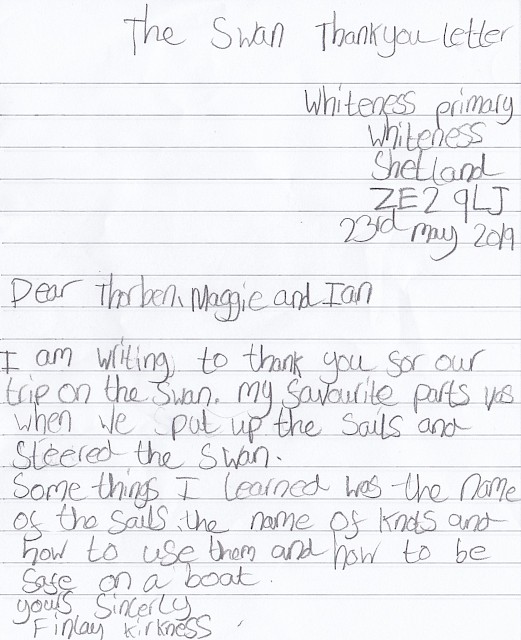 The Swan Thankyou letter
Whiteness primary
Whiteness
Shetland
ZE2 9LJ
23rd may 2019
Dear Thorben, Maggie and Ian
I am writing to thank you for our
trip on the Swan. my favourite parts was
when we put up the sails and
steered the swan.
Some things I learned was the name
of the sails the name of knots and
how to use them and how to be
safe on a boat.
yours Sincerly
Finlay Kirkness